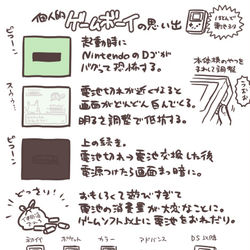 個人的ゲームボーイの思い出
ピコーン
起動時に
Nintendoのロゴが
バグってて恐怖する。
電池切れが近くなると
画面がどんどん白んでくる。
明るさ調整で低抗する。
本体横のやつを
まわして調整
ピコーン
上の続き。
電池切れ→電池交換した後
電源つけたら画面まっ暗に。
どっさい!
おもしろくて遊びすぎて
電池の消費量が大変なことに。
ゲームソフト以上に電池をおねだり。
カラー
アドバンス
DS以降